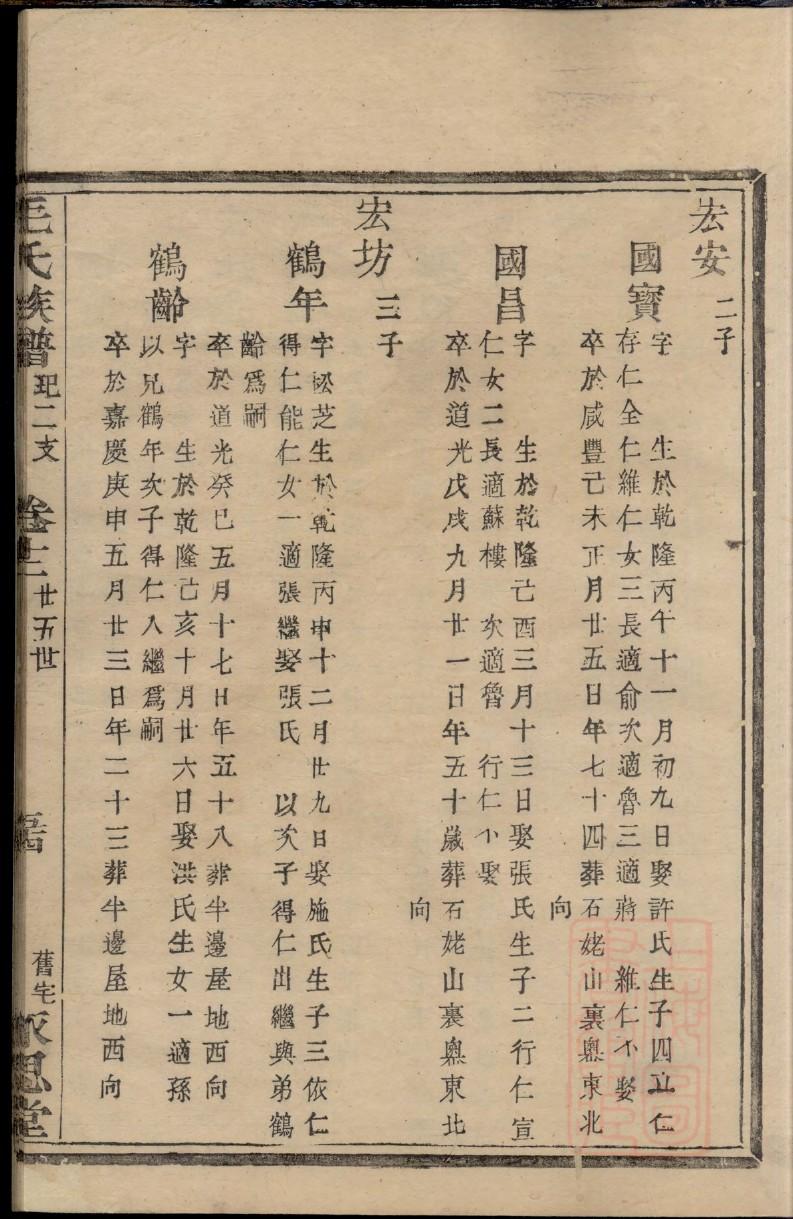 宏安 二子
國寶
字 生於乾隆丙午十一月初九日娶許氏生子四立仁
存仁全仁維仁女三長適俞次適魯三適蔣 維仁不娶
卒於咸豐己未正月廿五日年七十四葬石姥山裏奧東北
向
國昌
字 生於乾隆己酉三月十三日娶張氏生子二行仁宣
仁女二長適蘇樓 次適魯 行仁不娶
卒於道光戊戌九月廿一日年五十歲葬石姥山裏奧東北
向
宏坊 三子
鶴年
字松芝生於乾隆丙申十二月廿九日娶施氏生子三依仁
得仁能仁女一適張繼娶張氏 以次子得仁出繼與弟鶴
齡爲嗣
卒於道光癸巳五月十七日年五十八葬半邊屋地西向
鶴齡
字 生於乾隆己亥十月廿六日娶洪氏生女一適孫
以兄鶴年次子得仁入繼爲嗣
卒於嘉慶庚申五月廿三日年二十二葬半邊屋地西向
毛氏族譜 玘二支 卷十二 廿五世 舊宅 永思堂